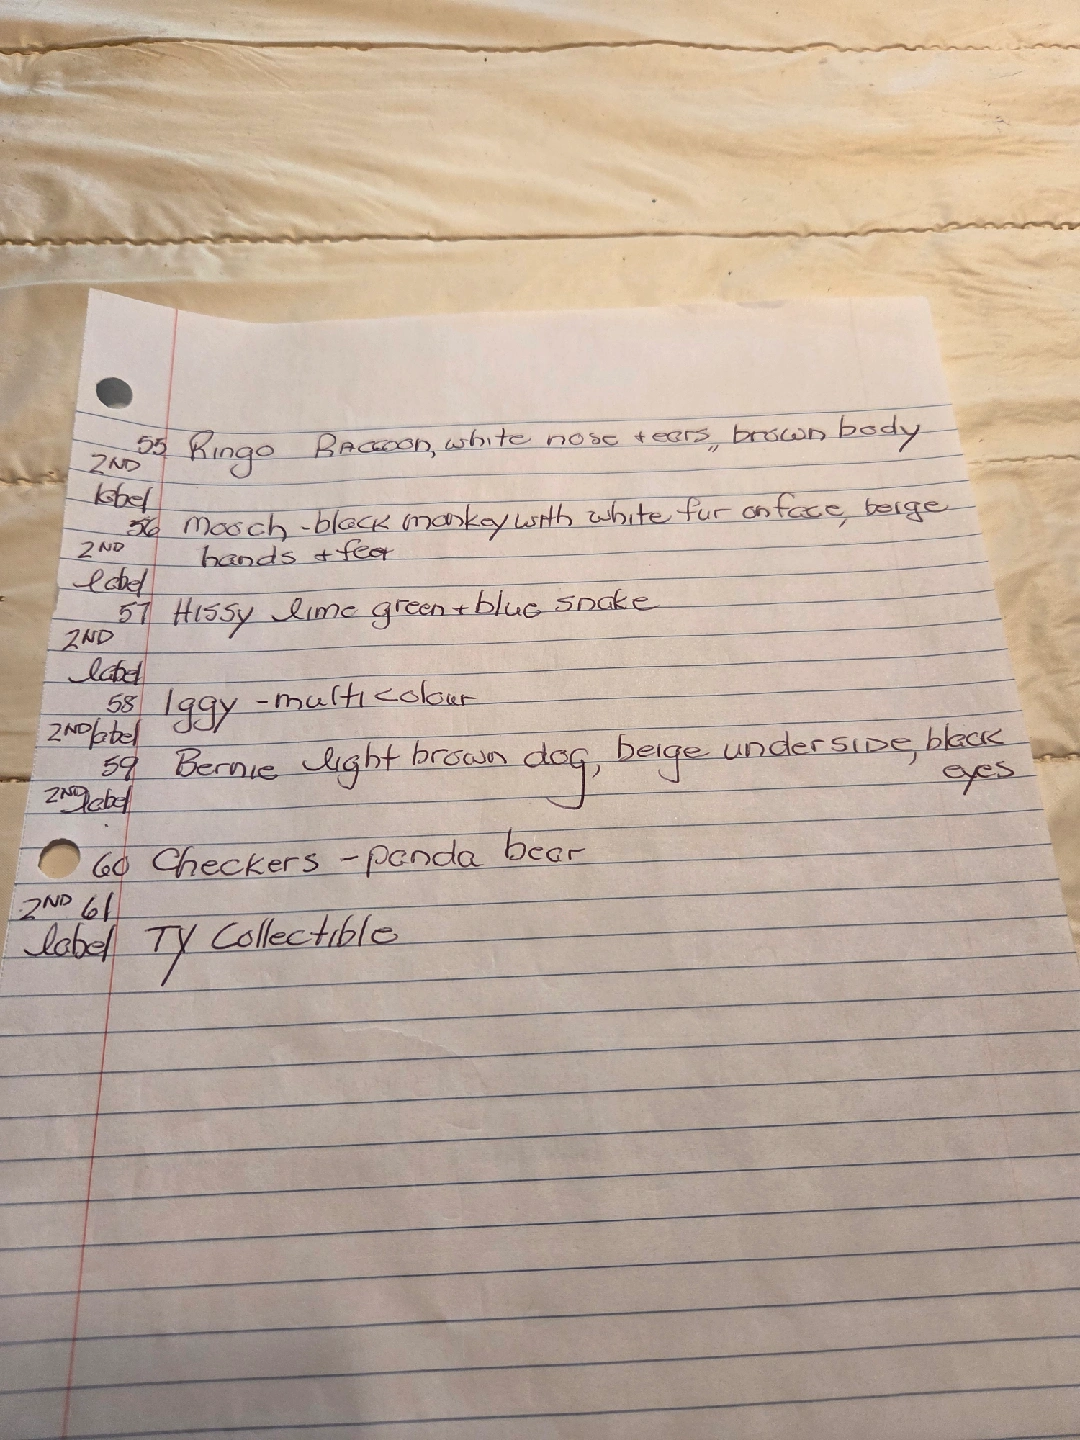 55 Ringo Raccoon, white nose + ears,, brown body
2ND
label
56 Mooch - black monkey with white fur on face, beige
2ND hands + feet
label
57 Hissy lime green + blue snake
2ND
label
58 Iggy - multicolour
2ND label
59 Bernie light brown dog, beige underside, black
eyes
2ND label
60 Checkers - panda bear
2ND 61
label TY Collectible